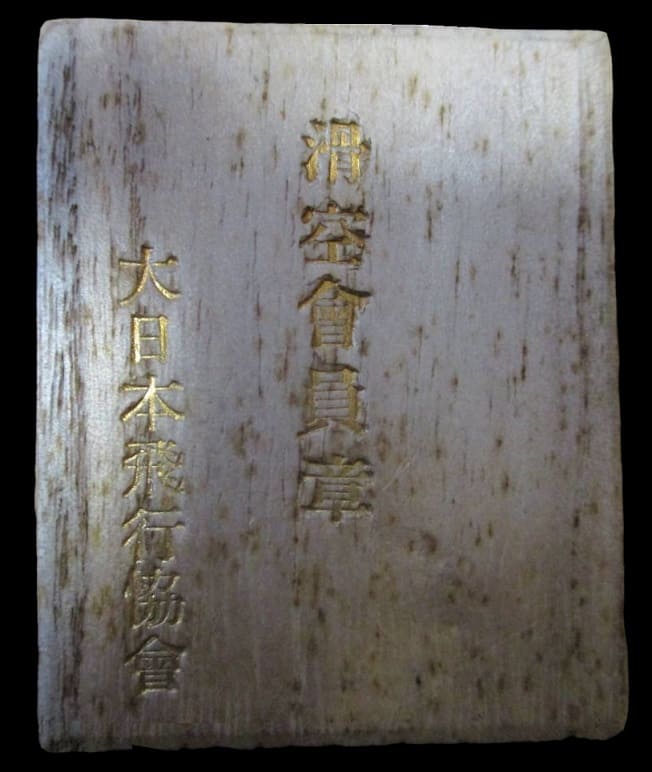 滑空會員章
大日本飛行協會